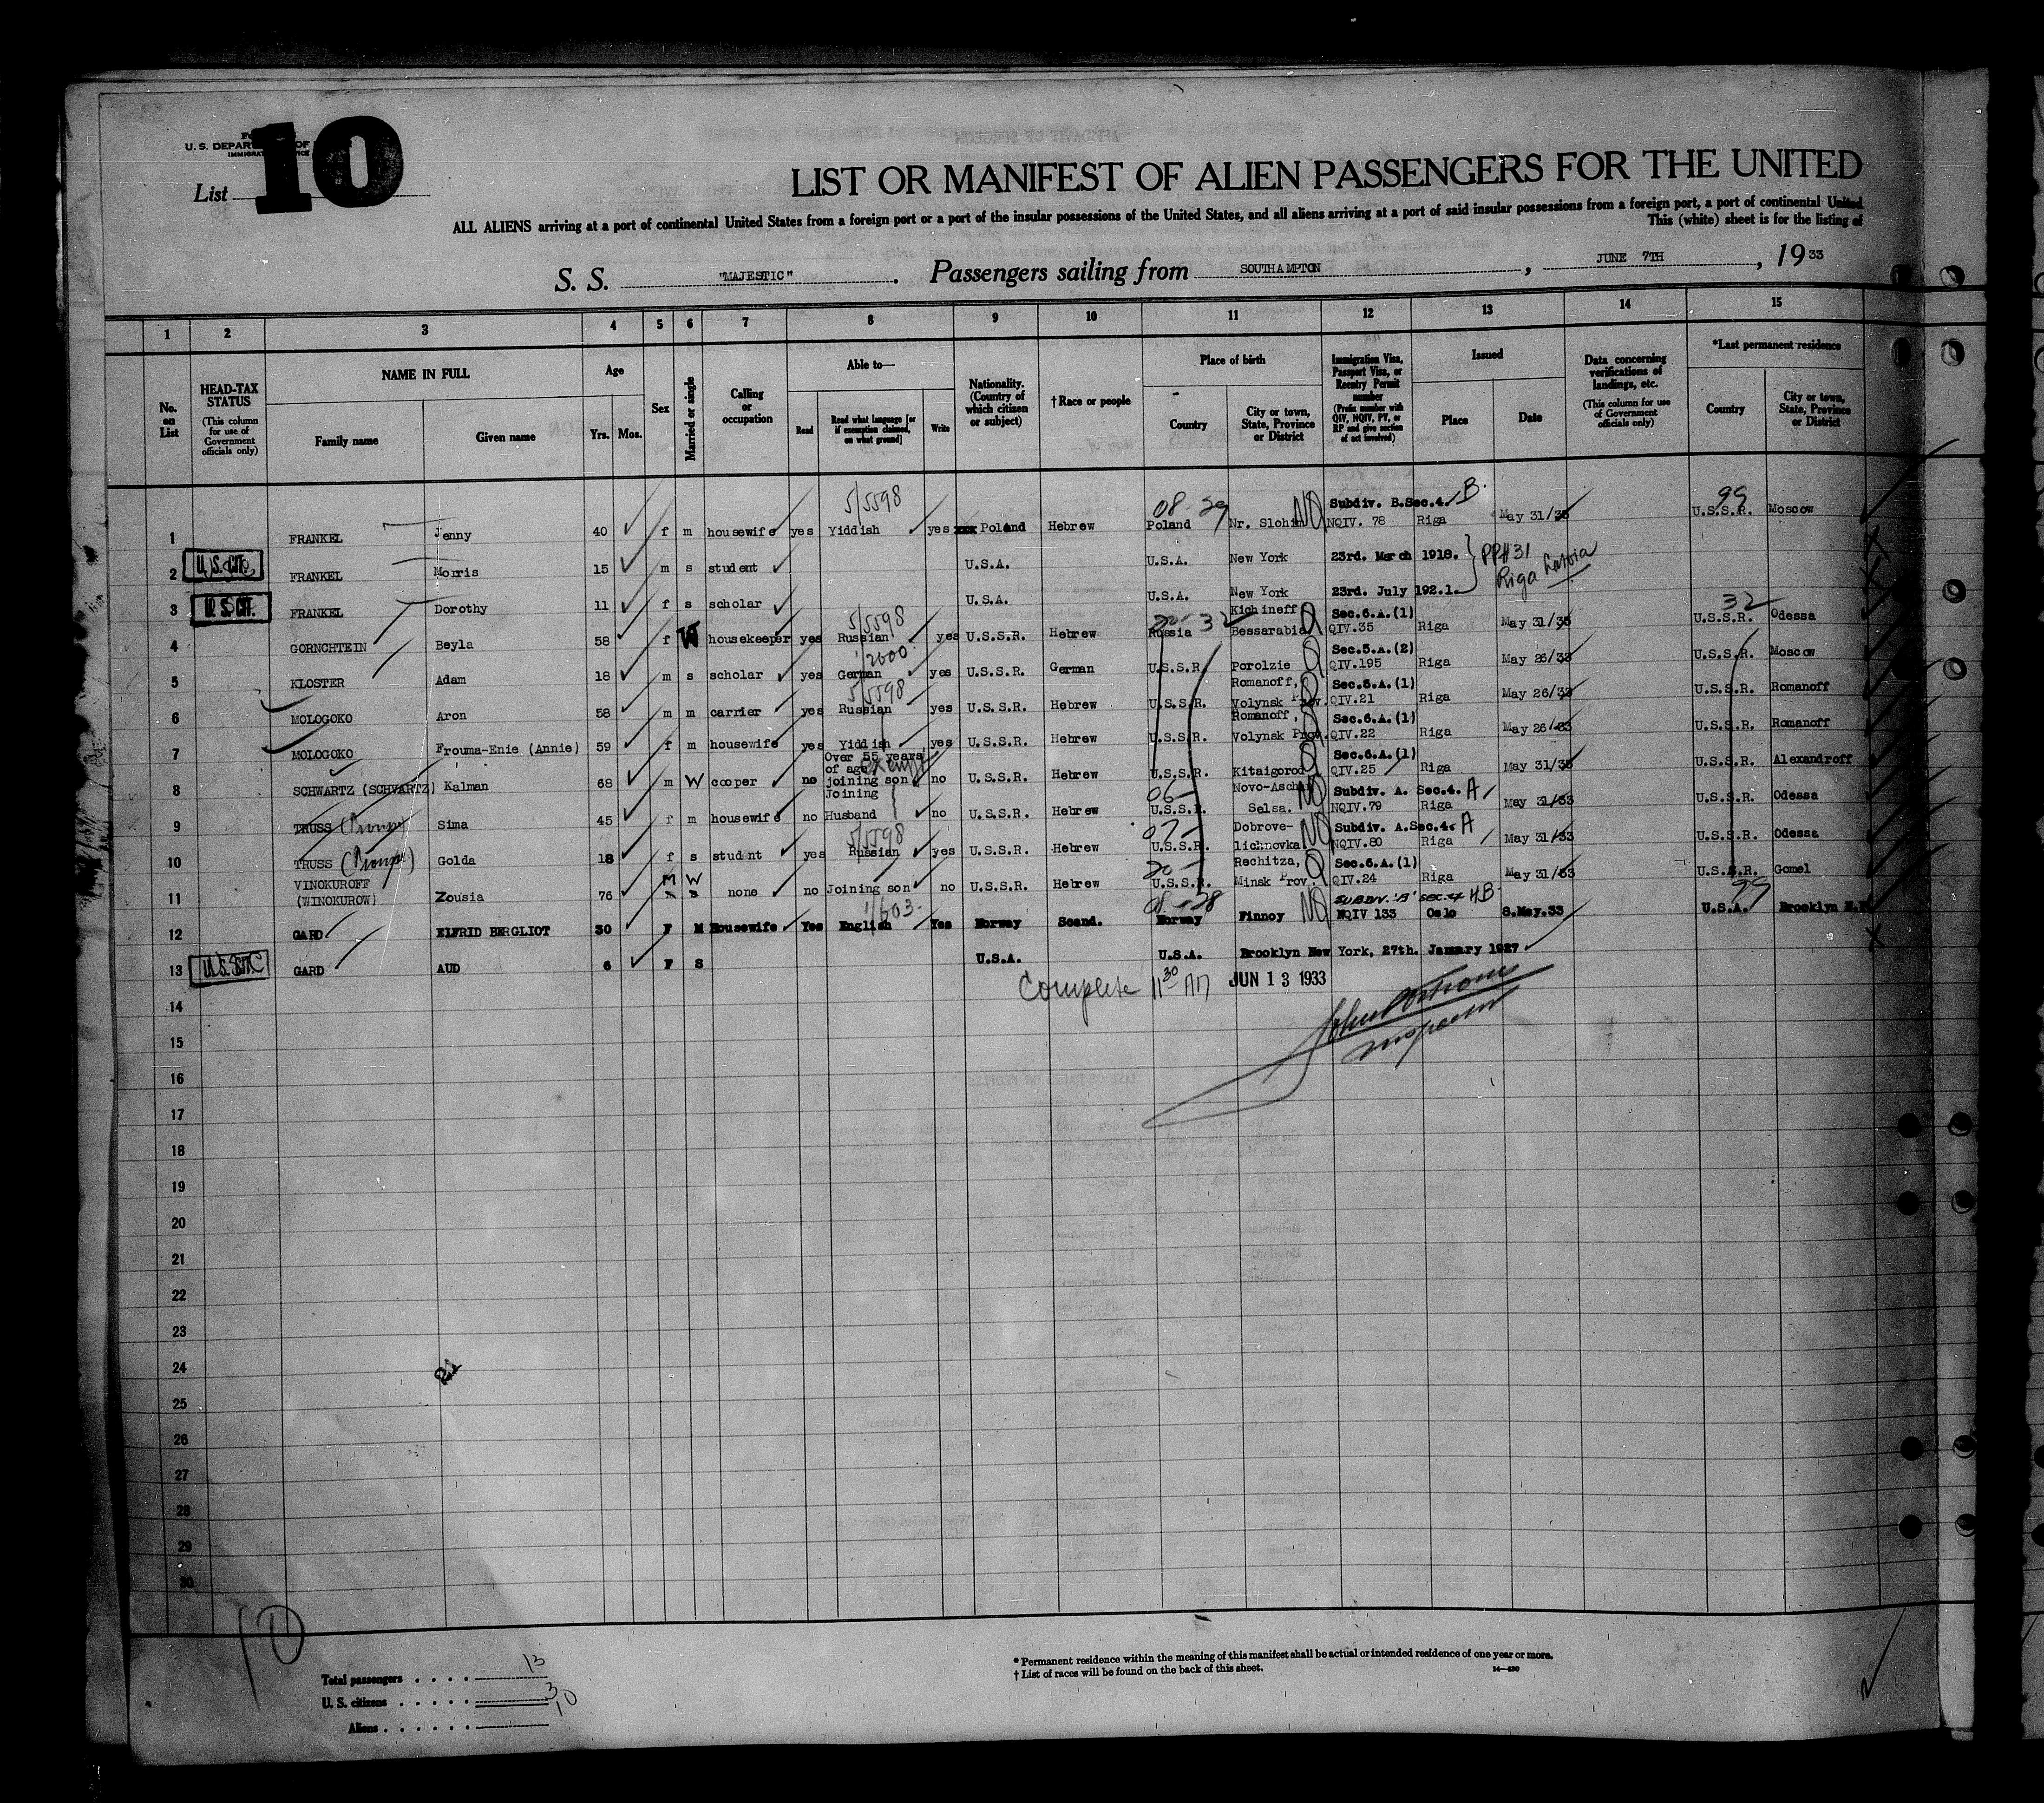 U. S. DEPAR OF
IMMIGRAT ICE
List 10
LIST OR MANIFEST OF ALIEN PASSENGERS FOR THE UNITED
ALL ALIENS arriving at a port of continental United States from a foreign port or a port of the insular possessions of the United States, and all aliens arriving at a port of said insular possessions from a foreign port, a port of continental United
This (white) sheet is for the listing of
S. S. "MAJESTIC". Passengers sailing from SOUTHAMPTON, JUNE 7TH, 1933
1 2 3 4 5 6 7 8 9 10 11 12 13 14 15
No. on List
HEAD-TAX STATUS (This column for use of Government officials only)
NAME IN FULL
Family name
Given name
Age
Yrs. Mos.
Sex
Married or single
Calling or occupation
Able to—
Read
Read what language [or if exemption claimed, on what ground]
Write
Nationality. (Country of which citizen or subject)
† Race or people
Place of birth
Country
City or town, State, Province or District
Immigration Visa, Passport Visa, or Reentry Permit number (Prefix number with QIV, NQIV, PV, or RP and give section of act involved)
Issued
Place
Date
Data concerning verifications of landings, etc. (This column for use of Government officials only)
*Last permanent residence
Country
City or town, State, Province or District
5/5598 08-29 NQ Subdiv. B.Sec.4. B. 99
1 FRANKEL Jenny 40 f m housewife yes Yiddish yes xxx Poland Hebrew Poland Nr. Slohim NQIV. 78 Riga May 31/33 U.S.S.R. Moscow
2 U.S. CIT. FRANKEL Morris 15 m s student U.S.A. U.S.A. New York 23rd. March 1918. PP#31
Riga Latvia
3 U.S. CIT. FRANKEL Dorothy 11 f s scholar U.S.A. U.S.A. New York 23rd. July 192.1.
5/5598 20-32 Kichineff Q Sec.6.A.(1) 32
4 GORNCHTEIN Beyla 58 f W housekeeper yes Russian yes U.S.S.R. Hebrew Russia Bessarabia QIV.35 Riga May 31/33 U.S.S.R. Odessa
1/2600 Q Sec.5.A.(2)
5 KLOSTER Adam 18 m s scholar yes German yes U.S.S.R. German U.S.S.R. Porolzie QIV.195 Riga May 26/33 U.S.S.R. Moscow
5/5598 Romanoff, Q Sec.6.A.(1)
6 MOLOGOKO Aron 58 m m carrier yes Russian yes U.S.S.R. Hebrew U.S.S.R. Volynsk Prov. QIV.21 Riga May 26/33 U.S.S.R. Romanoff
Romanoff, Sec.6.A.(1)
7 MOLOGOKO Frouma-Enie (Annie) 59 f m housewife yes Yiddish yes U.S.S.R. Hebrew U.S.S.R. Volynsk Prov. QIV.22 Riga May 26/33 U.S.S.R. Romanoff
Over 55 years
of age exempt Q Sec.6.A.(1)
8 SCHWARTZ (SCHVARTZ) Kalman 68 m W cooper no joining son no U.S.S.R. Hebrew U.S.S.R. Kitaigorod QIV.25 Riga May 31/33 U.S.S.R. Alexandroff
Joining 06- Novo-Aschan NQ Subdiv. A. Sec.4. A
9 TRUSS Sima 45 f m housewife no Husband no U.S.S.R. Hebrew U.S.S.R. Salsa. NQIV.79 Riga May 31/33 U.S.S.R. Odessa
5/5598 07- Dobrove- NQ Subdiv. A.Sec.4. A
10 TRUSS Golda 18 f s student yes Russian yes U.S.S.R. Hebrew U.S.S.R. lichnovka NQIV.80 Riga May 31/33 U.S.S.R. Odessa
VINOKUROFF M W 20- Rechitza, Q Sec.6.A.(1)
11 (WINOKUROW) Zousia 76 s none no Joining son no U.S.S.R. Hebrew U.S.S.R. Minsk Prov. QIV.24 Riga May 31/33 U.S.S.R. Gomel
1/603 08-28 NQ SUBDIV. 'B' SEC. 4 HB 99
12 GARD ELFRID BERGLIOT 30 F M Housewife Yes English Yes Norway Scand. Norway Finnoy NQIV 133 Oslo 8.May.33 U.S.A. Brooklyn N.Y
13 U.S. CIT. GARD AUD 6 F S U.S.A. U.S.A. Brooklyn New York, 27th. January 1927
Complete 11 30 AM JUN 13 1933
Inspector
14
15
16
17
18
19
20
21
22
23
24
21
25
26
27
28
29
30
Total passengers . . . . . 13
U. S. citizens . . . . . 3
Aliens . . . . . . 10
* Permanent residence within the meaning of this manifest shall be actual or intended residence of one year or more.
† List of races will be found on the back of this sheet.
14—430